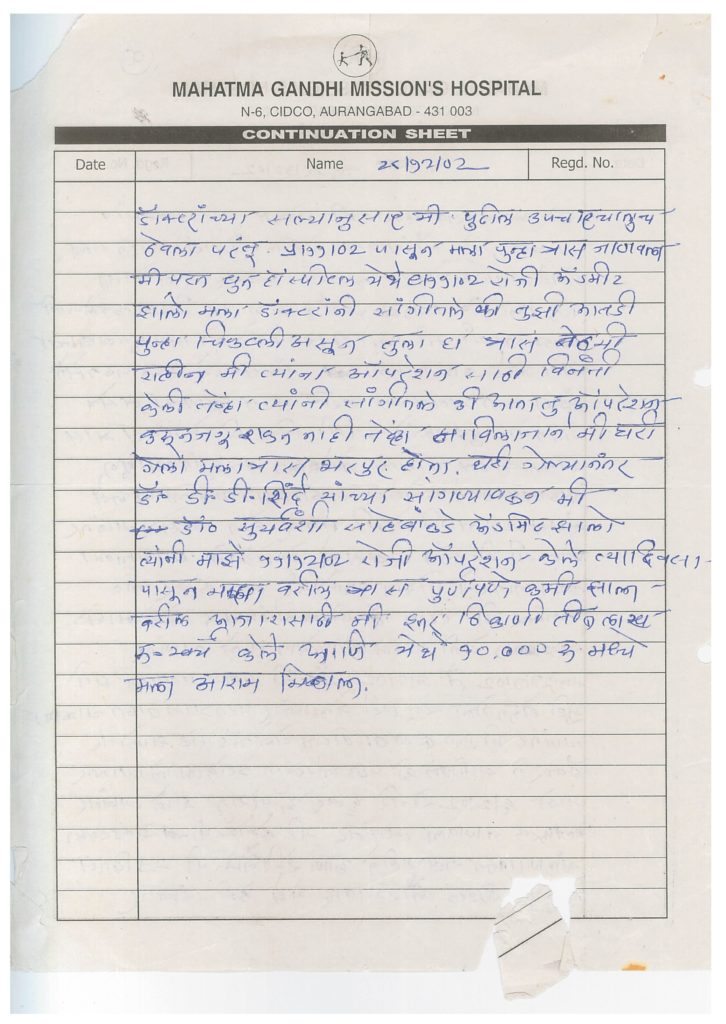 MAHATMA GANDHI MISSION'S HOSPITAL
N-6, CIDCO, AURANGABAD - 431 003
CONTINUATION SHEET
Date Name २८/१२/०२ Regd. No.
डॉक्टरांच्या सल्यानुसार मी पुढील उपचार चालुच
ठेवला परंतु ५/११/०२ पासून मला पुन्हा त्रास जाणवला
मी परत पुन हॉस्पीटल येथे ८/११/०२ रोजी अॅडमीट
झालो मला डॉक्टरांनी सांगीतले की तुझी आतडी
पुन्हा चिकटली असून तुला हा त्रास नेहमी
राहील मी त्यांना ऑपरेशन साठी विनंती
केली तेव्हा त्यांनी सांगीतले की आता तु ऑपरेशन
करून जगू शकत नाही तेव्हा मी घरी
गेलो मला त्रास भरपुर होता. घरी गेल्यानंतर
डॉ. डी. डी. शिंदे यांच्या सांगण्यावरून मी
डॉ० सुर्यवंशी साहेबांकडे अॅडमिट झालो
त्यांनी माझे ११/१२/०२ रोजी ऑपरेशन केले त्या दिवसा-
पासून मला वरील त्रास पुर्णपणे कमी झाला
वरील आजारासाठी मी इतर ठिकाणी तीन लाख
रू. खर्च केले आणि येथे १०,००० रू मध्ये
मला आराम मिळाला.